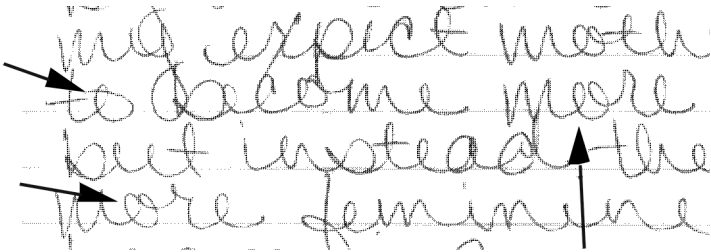 may expect moth
to become more
but instead the
more feminine